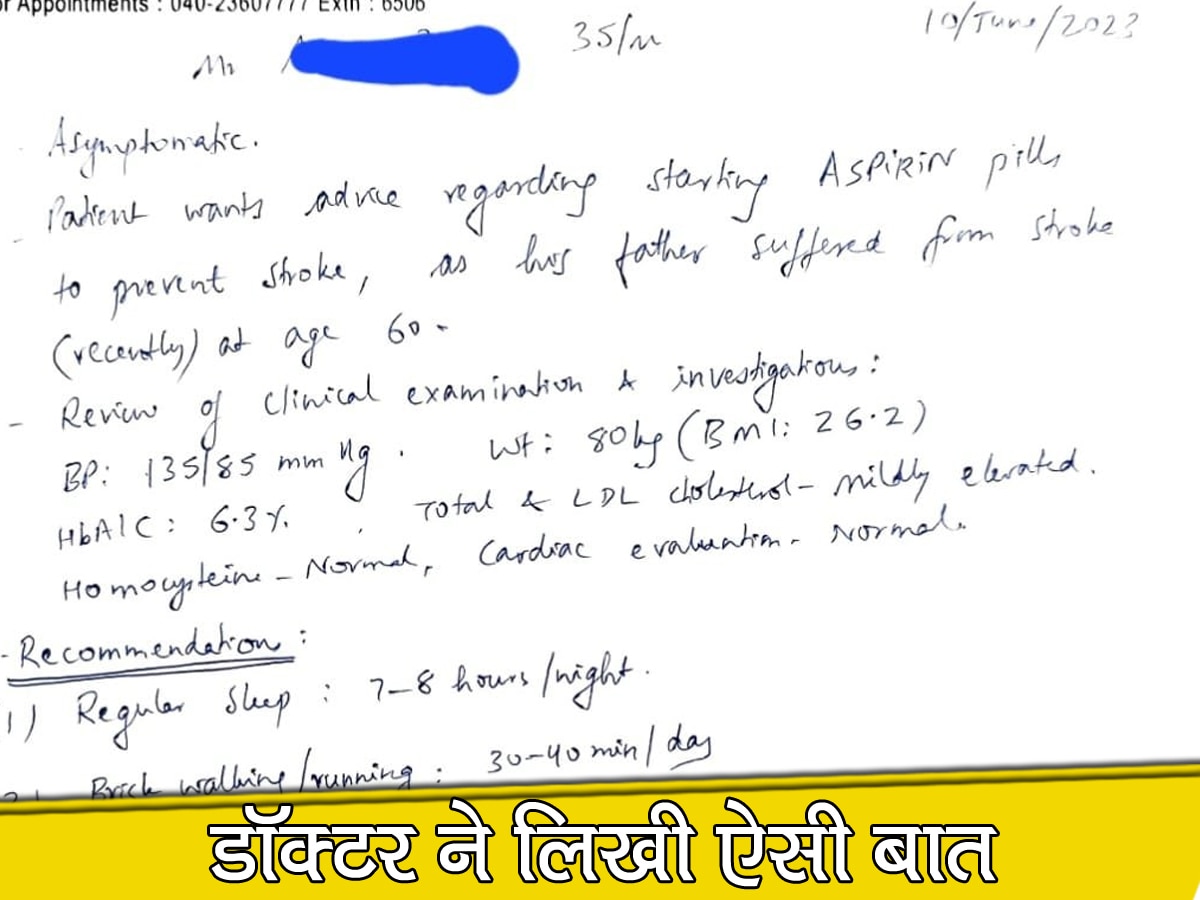 or Appointments : 040-23607777 Extn : 6506
Mr
35/M
10/June/2023
- Asymptomatic.
- Patient wants advice regarding starting ASPIRIN pills
to prevent stroke, as his father suffered from stroke
(recently) at age 60.
- Review of clinical examination & investigations:
BP: 135/85 mm Hg. Wt: 80kg (BMI: 26.2)
HbA1C: 6.3%. Total & LDL cholesterol - mildly elevated.
Homocysteine - Normal, Cardiac evaluation - Normal.
- Recommendation:
1) Regular Sleep : 7-8 hours/night.
2) Brick walking/running : 30-40 min/day
डॉक्टर ने लिखी ऐसी बात